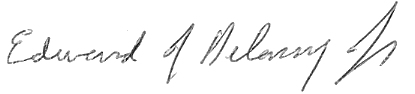 Edward J Delaney Jr